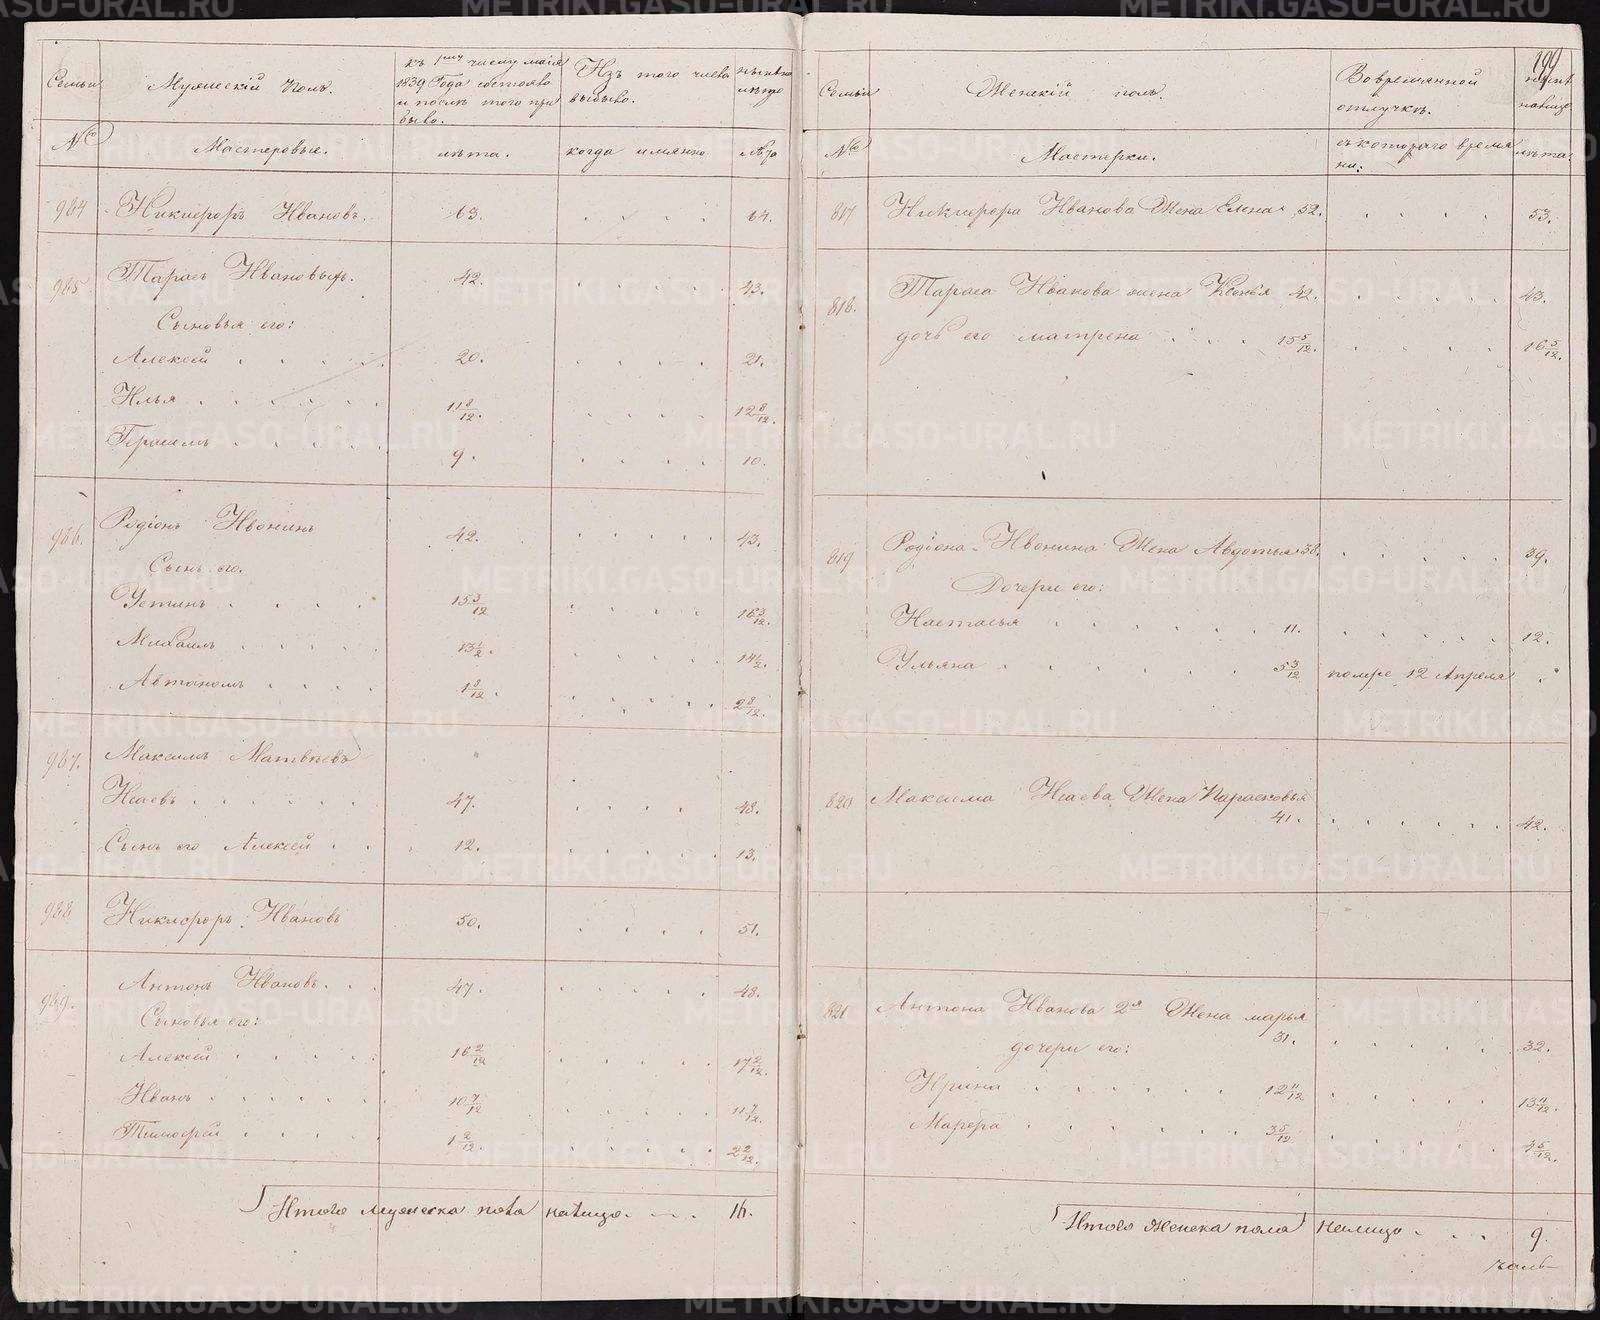 Семьи
Мужескій полъ.
къ 1му числу маія
1839 Года состояло
и послѣ того при
было.
Изъ того числа
выбыло.
нынѣ на
лицо
№
Мастеровые.
лѣта.
когда имянно.
лѣта
984 Никифоръ Ивановъ. 63. 64.
985 Тарасъ Ивановъ. 42. 43.
Сыновья его:
Алексей 20. 21.
Илья 11 8/12. 12 8/12.
Герасимъ 9. 10.
986. Родіонъ Ивонинъ 42. 43.
Сынъ его.
Устинъ 15 3/12 16 3/12.
Михаилъ 13 1/2. 14 1/2.
Автономъ 1 8/12. 2 8/12.
987. Максимъ Матвѣевъ
Исаевъ 47. 48.
Сынъ его Алексей 12. 13.
988 Никифоръ Ивановъ 50. 51.
989. Антонъ Ивановъ. 47. 48.
Сыновья его:
Алексей 16 2/12 17 2/12.
Иванъ 10 7/12 11 7/12
Тимофей 1 2/12. 2 2/12.
Итого мужеска пола налицо. 16.
199
Семьи
Женскій полъ.
Вовремянной
отлучкѣ.
нынѣ
налицо
№
Мастерки.
съ котораго время
ни.
лѣта.
817 Никифора Иванова Жена Елена 52. 53.
818. Тараса Иванова жена Ксенья 42. 43.
дочь его матрена 15 5/12. 16 5/12.
819 Родіона Ивонина Жена Авдотья 38. 39.
Дочери его:
Настасья 11. 12.
Ульяна 5 3/12 помре 12 Апреля
820 Максима Исаева Жена Парасковья
41. 42.
821 Антона Иванова 2я Жена марья
31. 32.
дочери его:
Ирина 12 11/12 13 11/12.
Марфа 3 5/12 4 5/12.
Итого женска пола налицо 9.